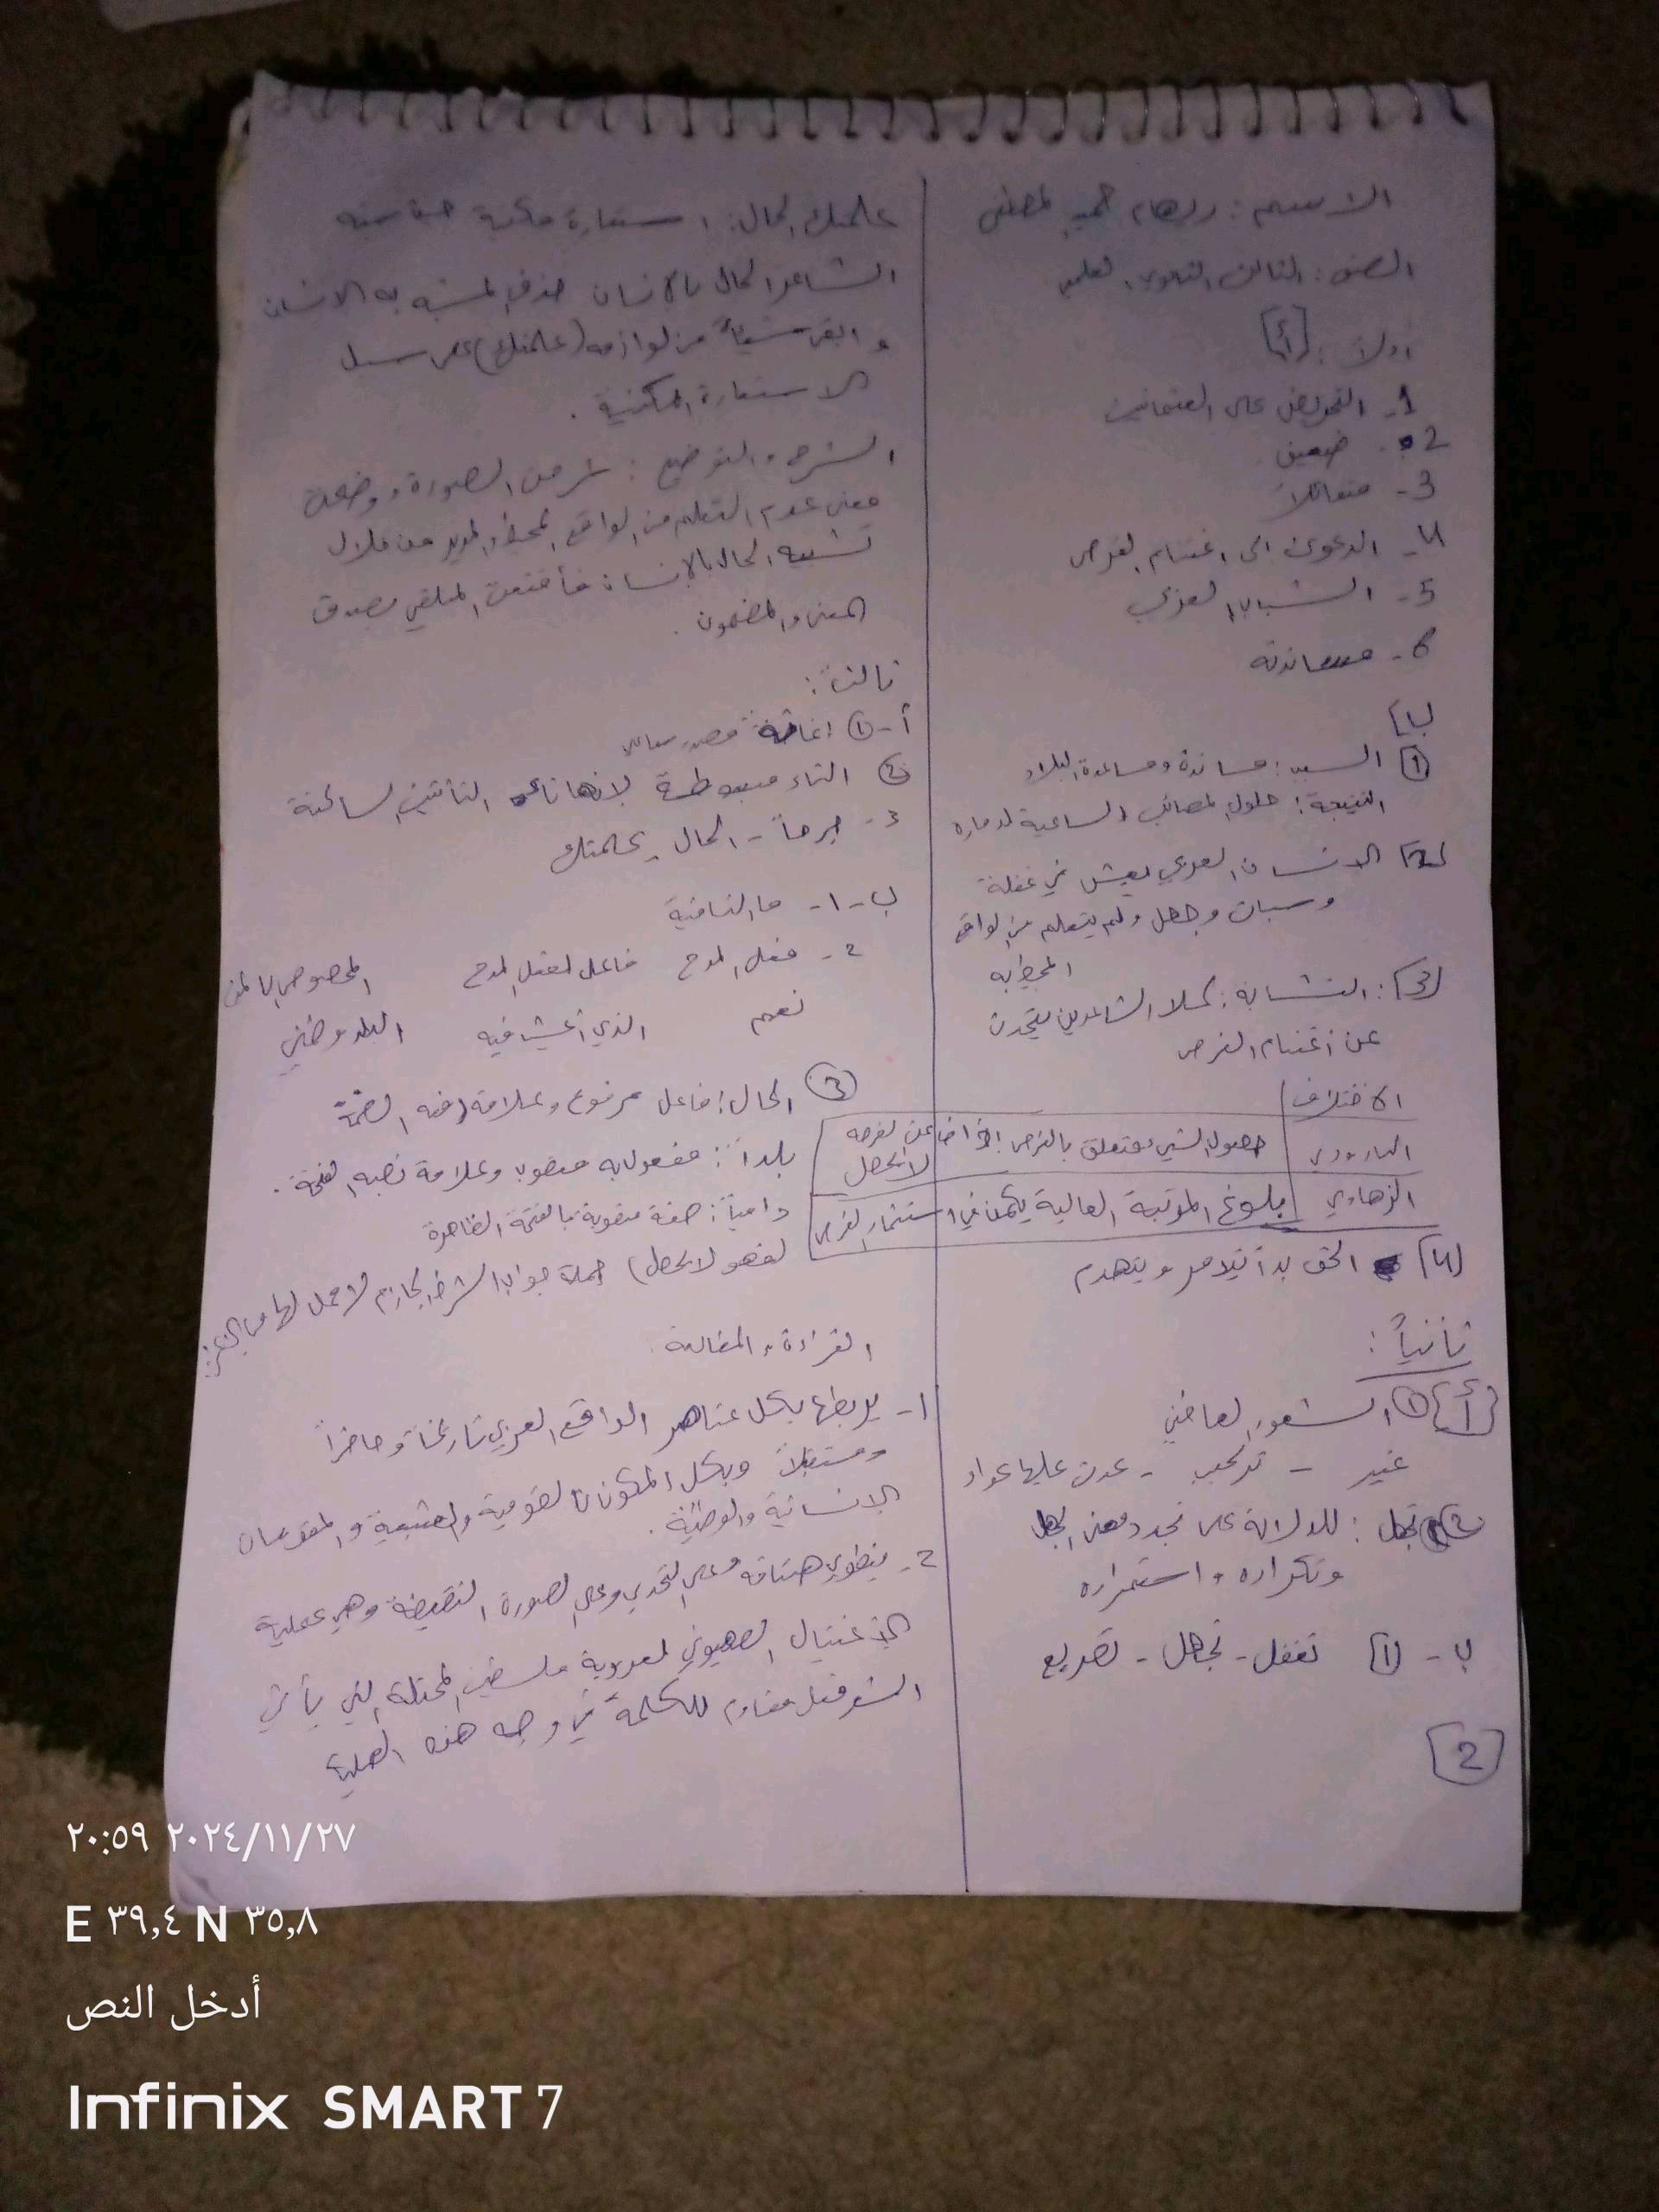 الاسم: رهام حميد لمصطفى
الصف: الثالث الثانوي العلمي
أولاً: [أ]
1- التحريض على العثمانيين
2-
3- متفائلاً
4- الدعوى الى اغتنام الفرص
5- الشباب العربي
6- مساندته
ب]
① السبب: مساندة ومساعدة البلاد
النتيجة: حلول المصائب الساعية لدماره
2] الانسان العربي يعيش في غفلة
وسبات وجهل ولم يتعلم من الواقع
المحيط به
3]: التشابه: كلا الشاعرين يتحدث
عن اغتنام الفرص
الاختلاف
البارودي حصول الشي متعلق بالفرص إذا ضاعت الفرصة
لا تحصل
الزهاوي بلوغ المرتبة العالية يكمن في استثمار الفرص
4] الحق بدأ يتلاشى ويتهدم
ثانياً:
{أ} ① الشعور العاطفي
غير - تركيب - عدت عليها عواد
② تجهل: للدلالة على تجدد معنى الجهل
وتكراره واستمراره
ب- 1] تغفل - تجهل - تصريع
[2]
علمتك الحال: استعارة مكنية حيث شبه
الشاعر الحال بالانسان حذف المشبه به الانسان
وابقى شيئاً من لوازمه (علمتك) على سبيل
الاستعارة المكنية.
الشرح والتوضيح: شرحت الصورة ووضحت
معنى عدم التعلم من الواقع المحيط المرير من خلال
تشبيه الحال بالإنسان فأقنعت المتلقي بصدق
المعنى والمضمون.
ثالثاً:
أ- ① اغاثة مصدر
② التاء مبسوطة لانها تاء التأنيث الساكنة
3- - الحال - علمتك
ب- 1- ما النافية
2- فعل المدح فاعل لفعل المدح المخصوص بالمدح
نعم الذي أعيش فيه البلد وطني
③ الحال: فاعل مرفوع وعلامة رفعه الضمة
بلداً: مفعول به منصوب وعلامة نصبه الفتحة.
دامياً: صفة منصوبة بالفتحة الظاهرة
(فهو لا يحصل) جملة جواب الشرط الجازم لا محل لها من الإعراب
القراءة والمطالعة
1- يربطها بكل عناصر الواقع العربي تاريخاً وحاضراً
ومستقبلاً وبكل المكونات القومية والشعبية والمقومات
الانسانية والوطنية.
2- ينطوي هتافه على التحدي وعلى الصورة النقيضة وهي عملية
الاغتيال الصهيوني لعروبة فلسطين المحتلة التي يأتي
الشعر فعل مقاوم للكلمة في وجه هذه العملية
٢٠:٥٩ ٢٠٢٤/١١/٢٧
E ٣٩,٤ N ٣٥,٨
أدخل النص
Infinix SMART 7